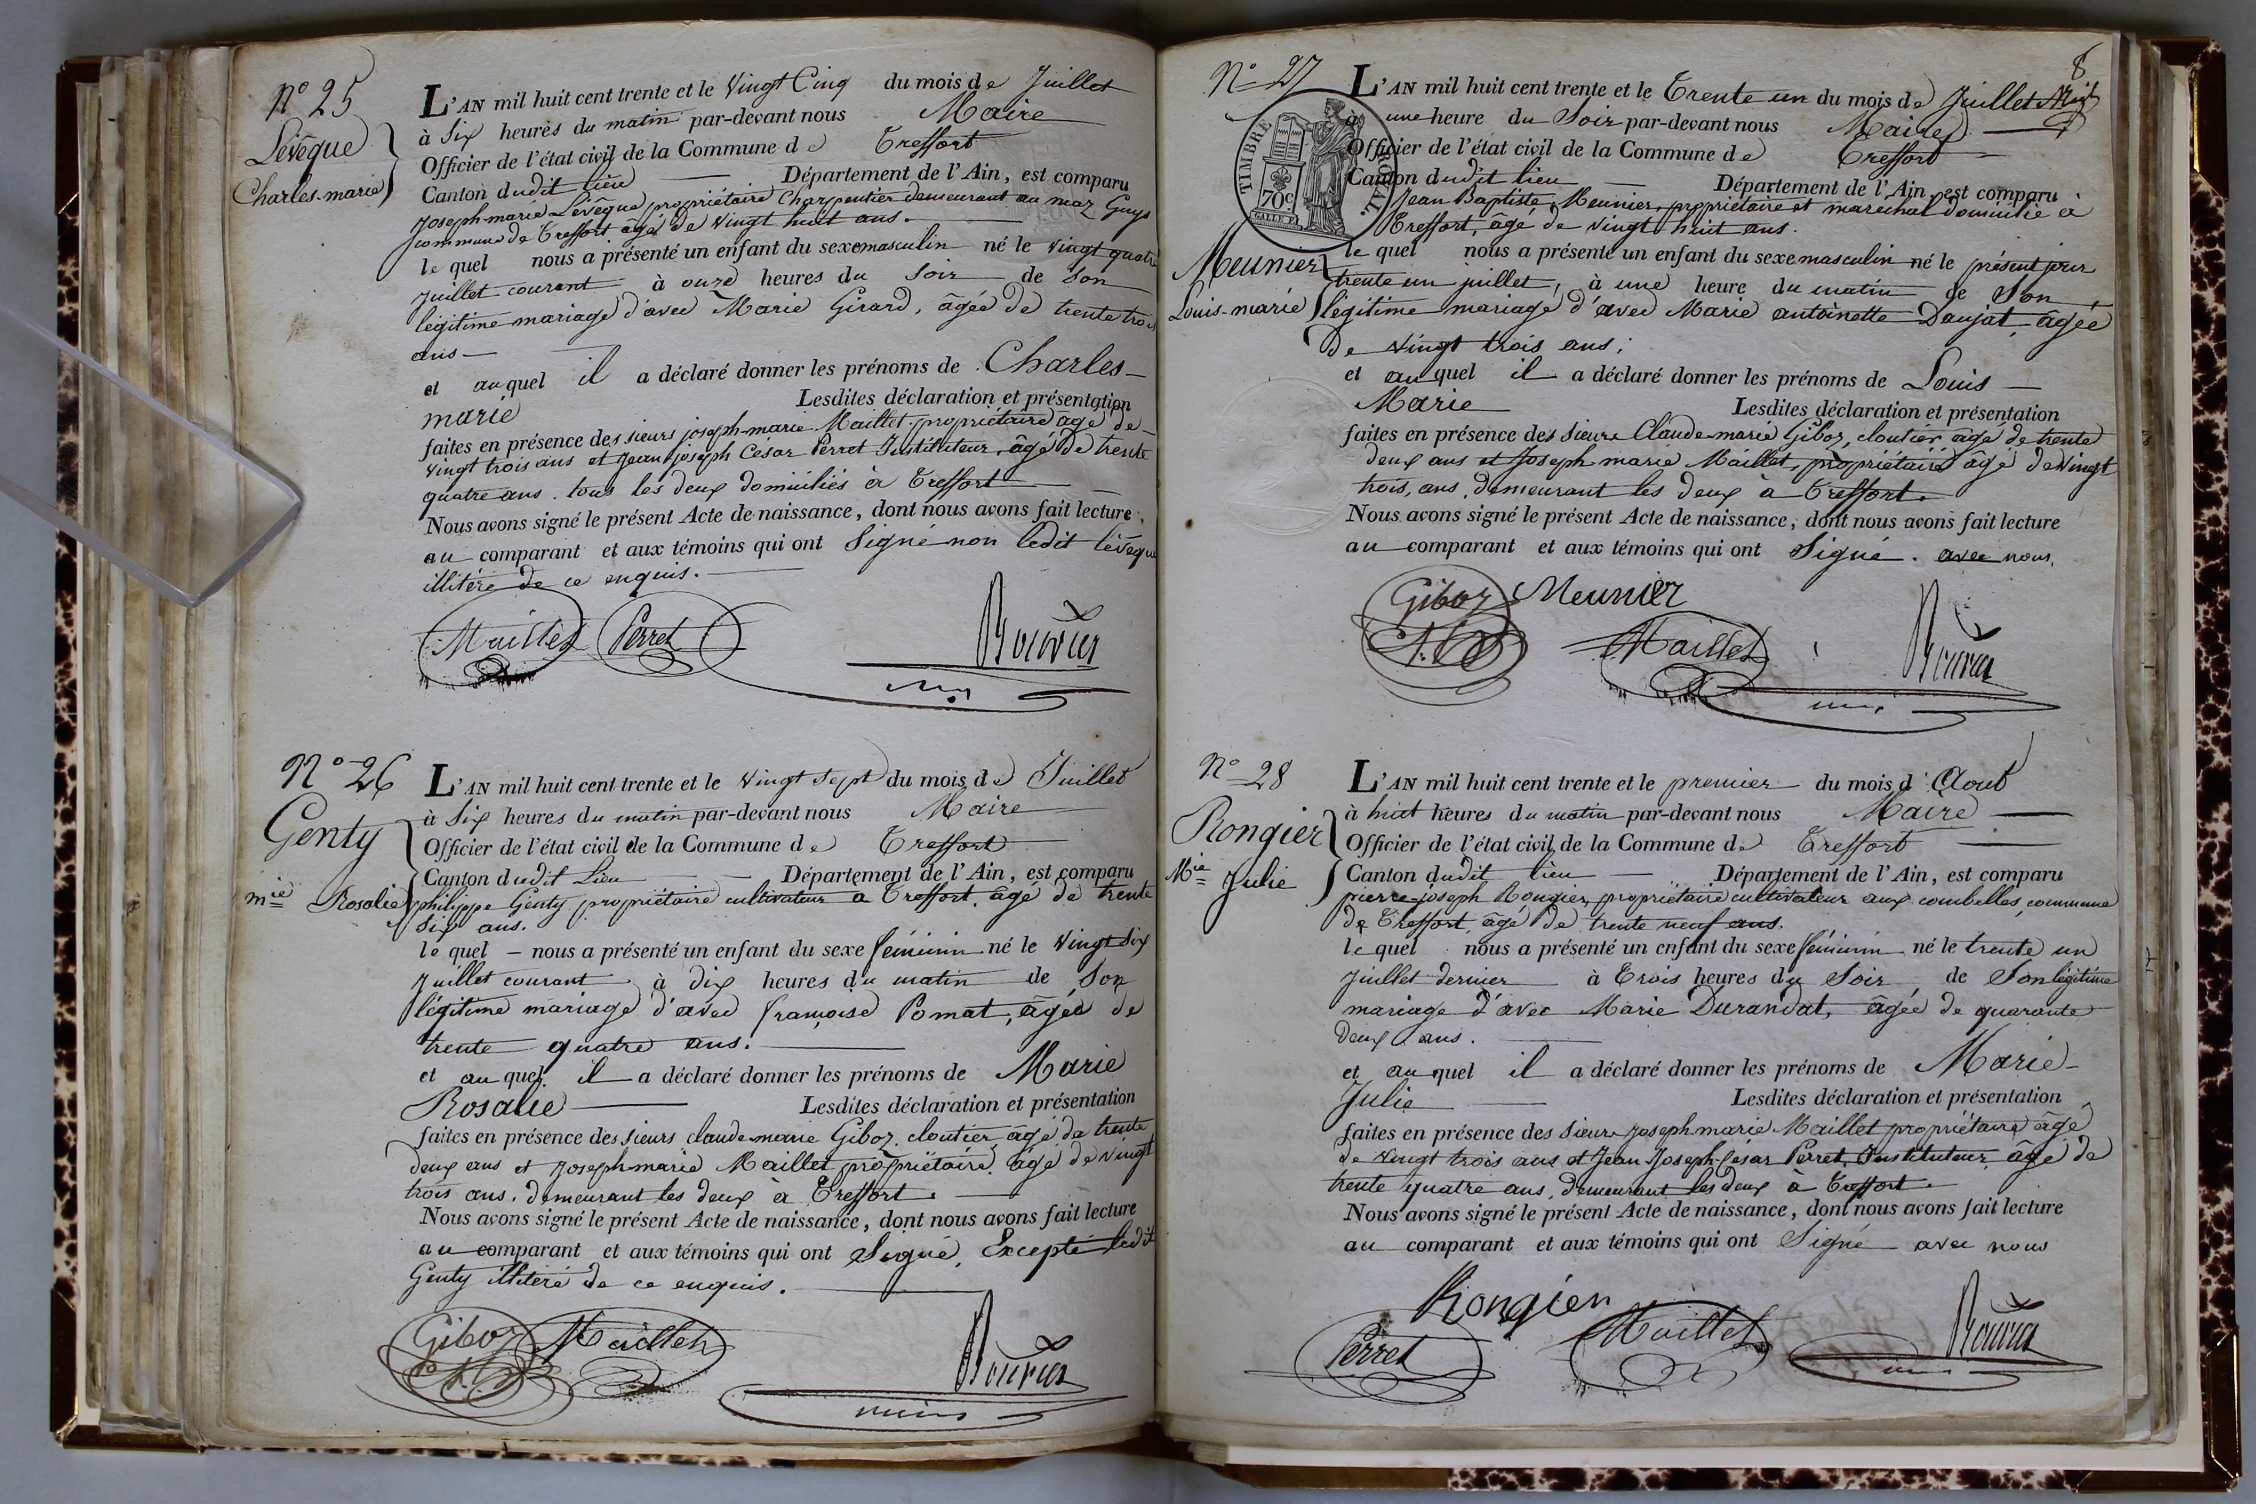 N° 25
Lévêque
Charles-marie
L'AN mil huit cent trente et le vingt Cinq du mois de Juillet
à Six heures du matin par-devant nous Maire
Officier de l'état civil de la Commune de Treffort
Canton dudit lieu Département de l'Ain, est comparu
Joseph-marie Lévêque propriétaire Charpentier demeurant au maz Guys
commune de Treffort âgé de vingt huit ans.
lequel nous a présenté un enfant du sexe masculin né le vingt quatre
juillet courant à onze heures du soir de son
légitime mariage d'avec Marie Girard, âgée de trente trois
ans
et auquel il a déclaré donner les prénoms de Charles-
marie Lesdites déclaration et présentation
faites en présence des sieurs joseph-marie Maillet propriétaire âgé de
vingt trois ans et Jean joseph César Perret Instituteur, âgé de trente
quatre ans. tous les deux domiciliés à Treffort
Nous avons signé le présent Acte de naissance, dont nous avons fait lecture
au comparant et aux témoins qui ont Signé non ledit lévêque
illitéré de ce enquis.
Maillet Perret Bouvier
N° 26
Genty
mie Rosalie
L'AN mil huit cent trente et le vingt Sept du mois de Juillet
à Six heures du matin par-devant nous Maire
Officier de l'état civil de la Commune de Treffort
Canton dudit Lieu Département de l'Ain, est comparu
philippe Genty propriétaire cultivateur à Treffort, âgé de trente
Six ans.
lequel nous a présenté un enfant du sexe féminin né le vingt Six
Juillet courant à dix heures du matin de Son
légitime mariage d'avec françoise Pomat, âgée de
trente quatre ans.
et auquel il a déclaré donner les prénoms de Marie
Rosalie Lesdites déclaration et présentation
faites en présence des sieurs claude-marie Giboz, cloutier âgé de trente
deux ans et Joseph-marie Maillet propriétaire âgé de vingt
trois ans, demeurant les deux à Treffort.
Nous avons signé le présent Acte de naissance, dont nous avons fait lecture
au comparant et aux témoins qui ont Signé, Excepté ledit
Genty illitéré de ce enquis.
Giboz Maillet Bouvier
8
N° 27
TIMBRE ROYAL.
70c
Meunier
Louis-marie
L'AN mil huit cent trente et le Trente un du mois de Juillet
à une heure du Soir par-devant nous Maire
Officier de l'état civil de la Commune de Treffort
Canton dudit lieu Département de l'Ain, est comparu
Jean Baptiste Meunier, propriétaire et maréchal domicilié à
Treffort, âgé de vingt huit ans.
lequel nous a présenté un enfant du sexe masculin né le présent jour
trente un juillet, à une heure du matin de Son
légitime mariage d'avec Marie antoinette Daujat, âgée
de vingt trois ans;
et auquel il a déclaré donner les prénoms de Louis
Marie Lesdites déclaration et présentation
faites en présence des sieurs Claude-marie Giboz, cloutier âgé de trente
deux ans et Joseph marie Maillet, propriétaire âgé de vingt
trois, ans, demeurant les deux à Treffort.
Nous avons signé le présent Acte de naissance, dont nous avons fait lecture
au comparant et aux témoins qui ont Signé. avec nous.
Giboz Meunier
Maillet Bouvier
N° 28
Rongier
Mie Julie
L'AN mil huit cent trente et le premier du mois d'Aout
à huit heures du matin par-devant nous Maire
Officier de l'état civil de la Commune de Treffort
Canton dudit lieu Département de l'Ain, est comparu
pierre-joseph Rongier, propriétaire cultivateur aux combelles, commune
de Treffort, âgé de trente neuf ans.
lequel nous a présenté un enfant du sexe féminin né le trente un
Juillet dernier à Trois heures du Soir de Son légitime
mariage d'avec Marie Durandat, âgée de quarante
deux ans.
et auquel il a déclaré donner les prénoms de Marie-
Julie Lesdites déclaration et présentation
faites en présence des sieurs Joseph marie Maillet propriétaire âgé
de vingt trois ans et Jean Joseph-César Perret, Instituteur âgé de
trente quatre ans, demeurant les deux à Treffort.
Nous avons signé le présent Acte de naissance, dont nous avons fait lecture
au comparant et aux témoins qui ont Signé avec nous
Rongier
Perret Maillet Bouvier